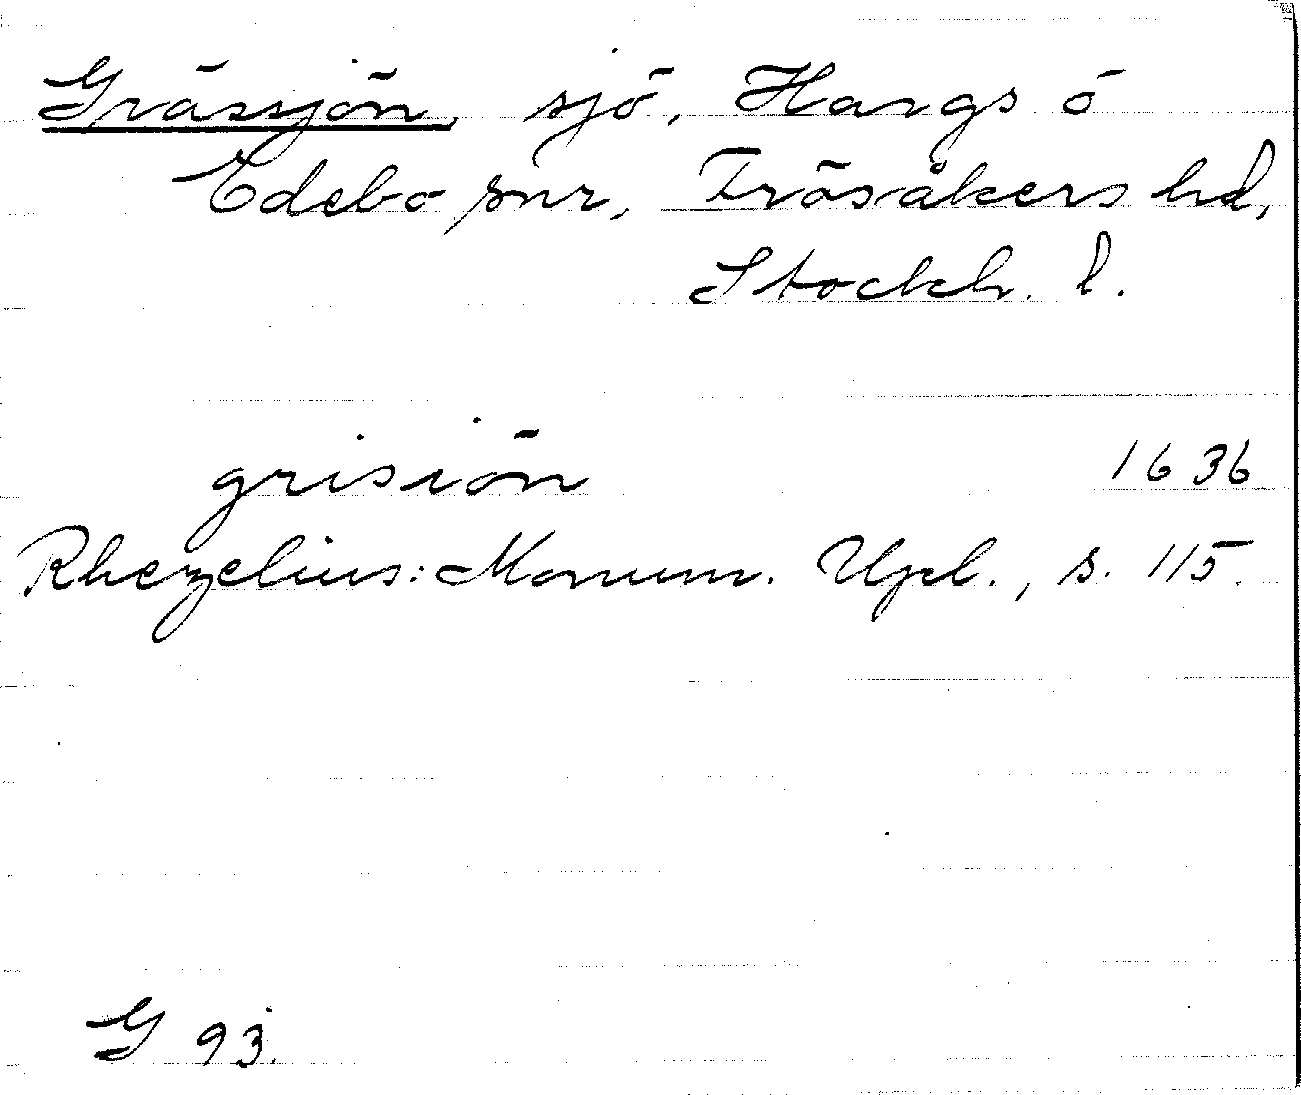 Grässjön, sjö, Hargs o
Edebo snr, Frösåkers hd,
Stockh. l.
grisiön 1636
Rhezelius: Monum. Upl., s. 115.
G 93.